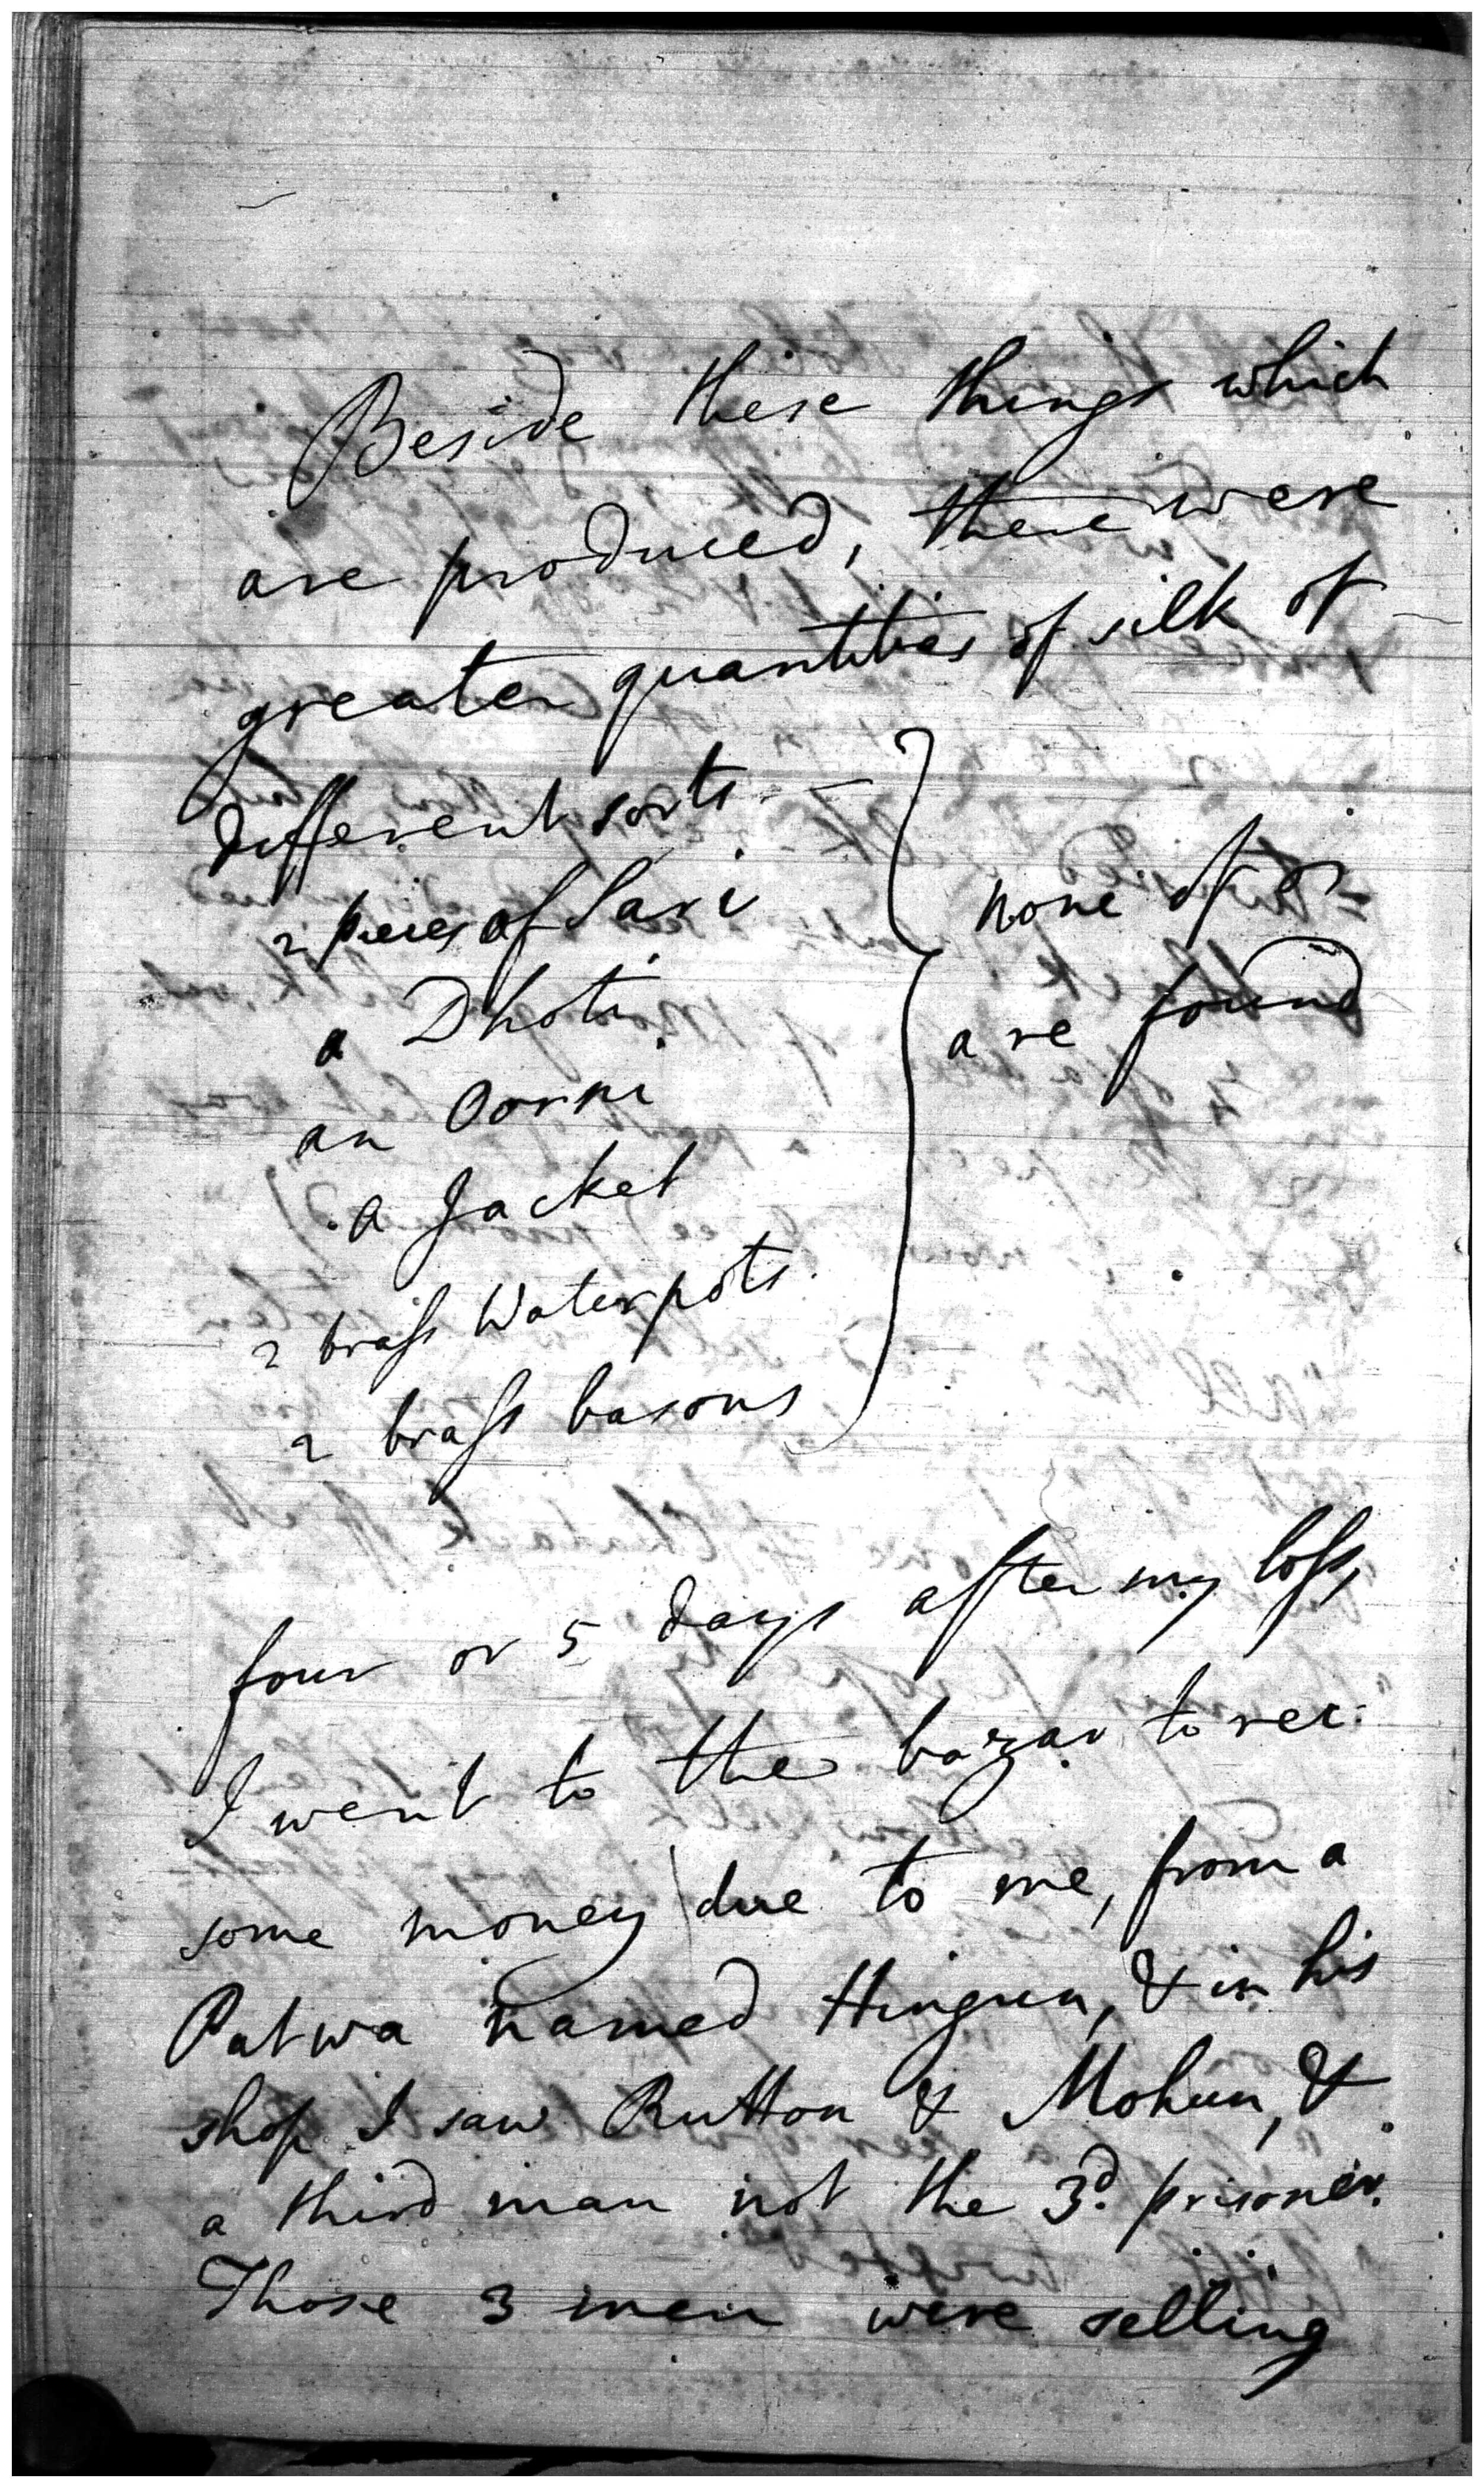 Beside these things which
are produced, there were
greater quantities of silk of
different sorts —
2 pieces of Sari
a Dhoti
an Oorni
a Jacket
2 brass Waterpots.
2 brass basons
none of
are found
four or 5 days after my loss,
I went to the bazar to rec:
some money due to me, from a
Patwa named Hingun, & in his
shop I saw Rutton & Mohun, &
a third man not the 3d. prisoner.
Those 3 men were selling